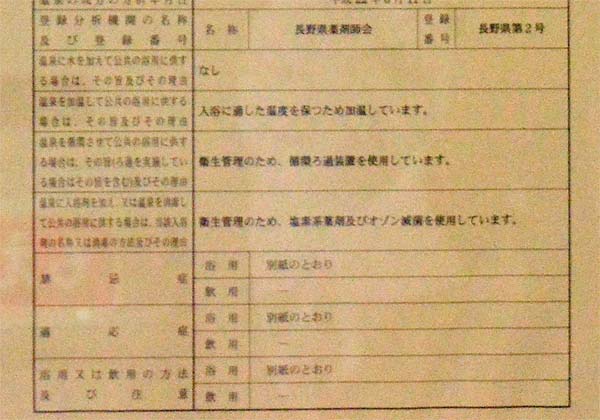 登録分析機関の名称
及び登録番号
名称
長野県薬剤師会
登録
番号
長野県第2号
温泉に水を加えて公共の浴用に供す
る場合は、その旨及びその理由
なし
温泉を加温して公共の浴用に供する
場合は、その旨及びその理由
入浴に適した温度を保つため加温しています。
温泉を循環させて公共の浴用に供す
る場合は、その旨(ろ過を実施してい
る場合はその旨を含む)及びその理由
衛生管理のため、循環ろ過装置を使用しています。
温泉に入浴剤を加え、又は温泉を消毒し
て公共の浴用に供する場合は、当該入浴
剤の名称又は消毒の方法及びその理由
衛生管理のため、塩素系薬剤及びオゾン滅菌を使用しています。
禁忌症
浴用
別紙のとおり
飲用
―
適応症
浴用
別紙のとおり
飲用
―
浴用又は飲用の方法
及び注意
浴用
別紙のとおり
飲用
―